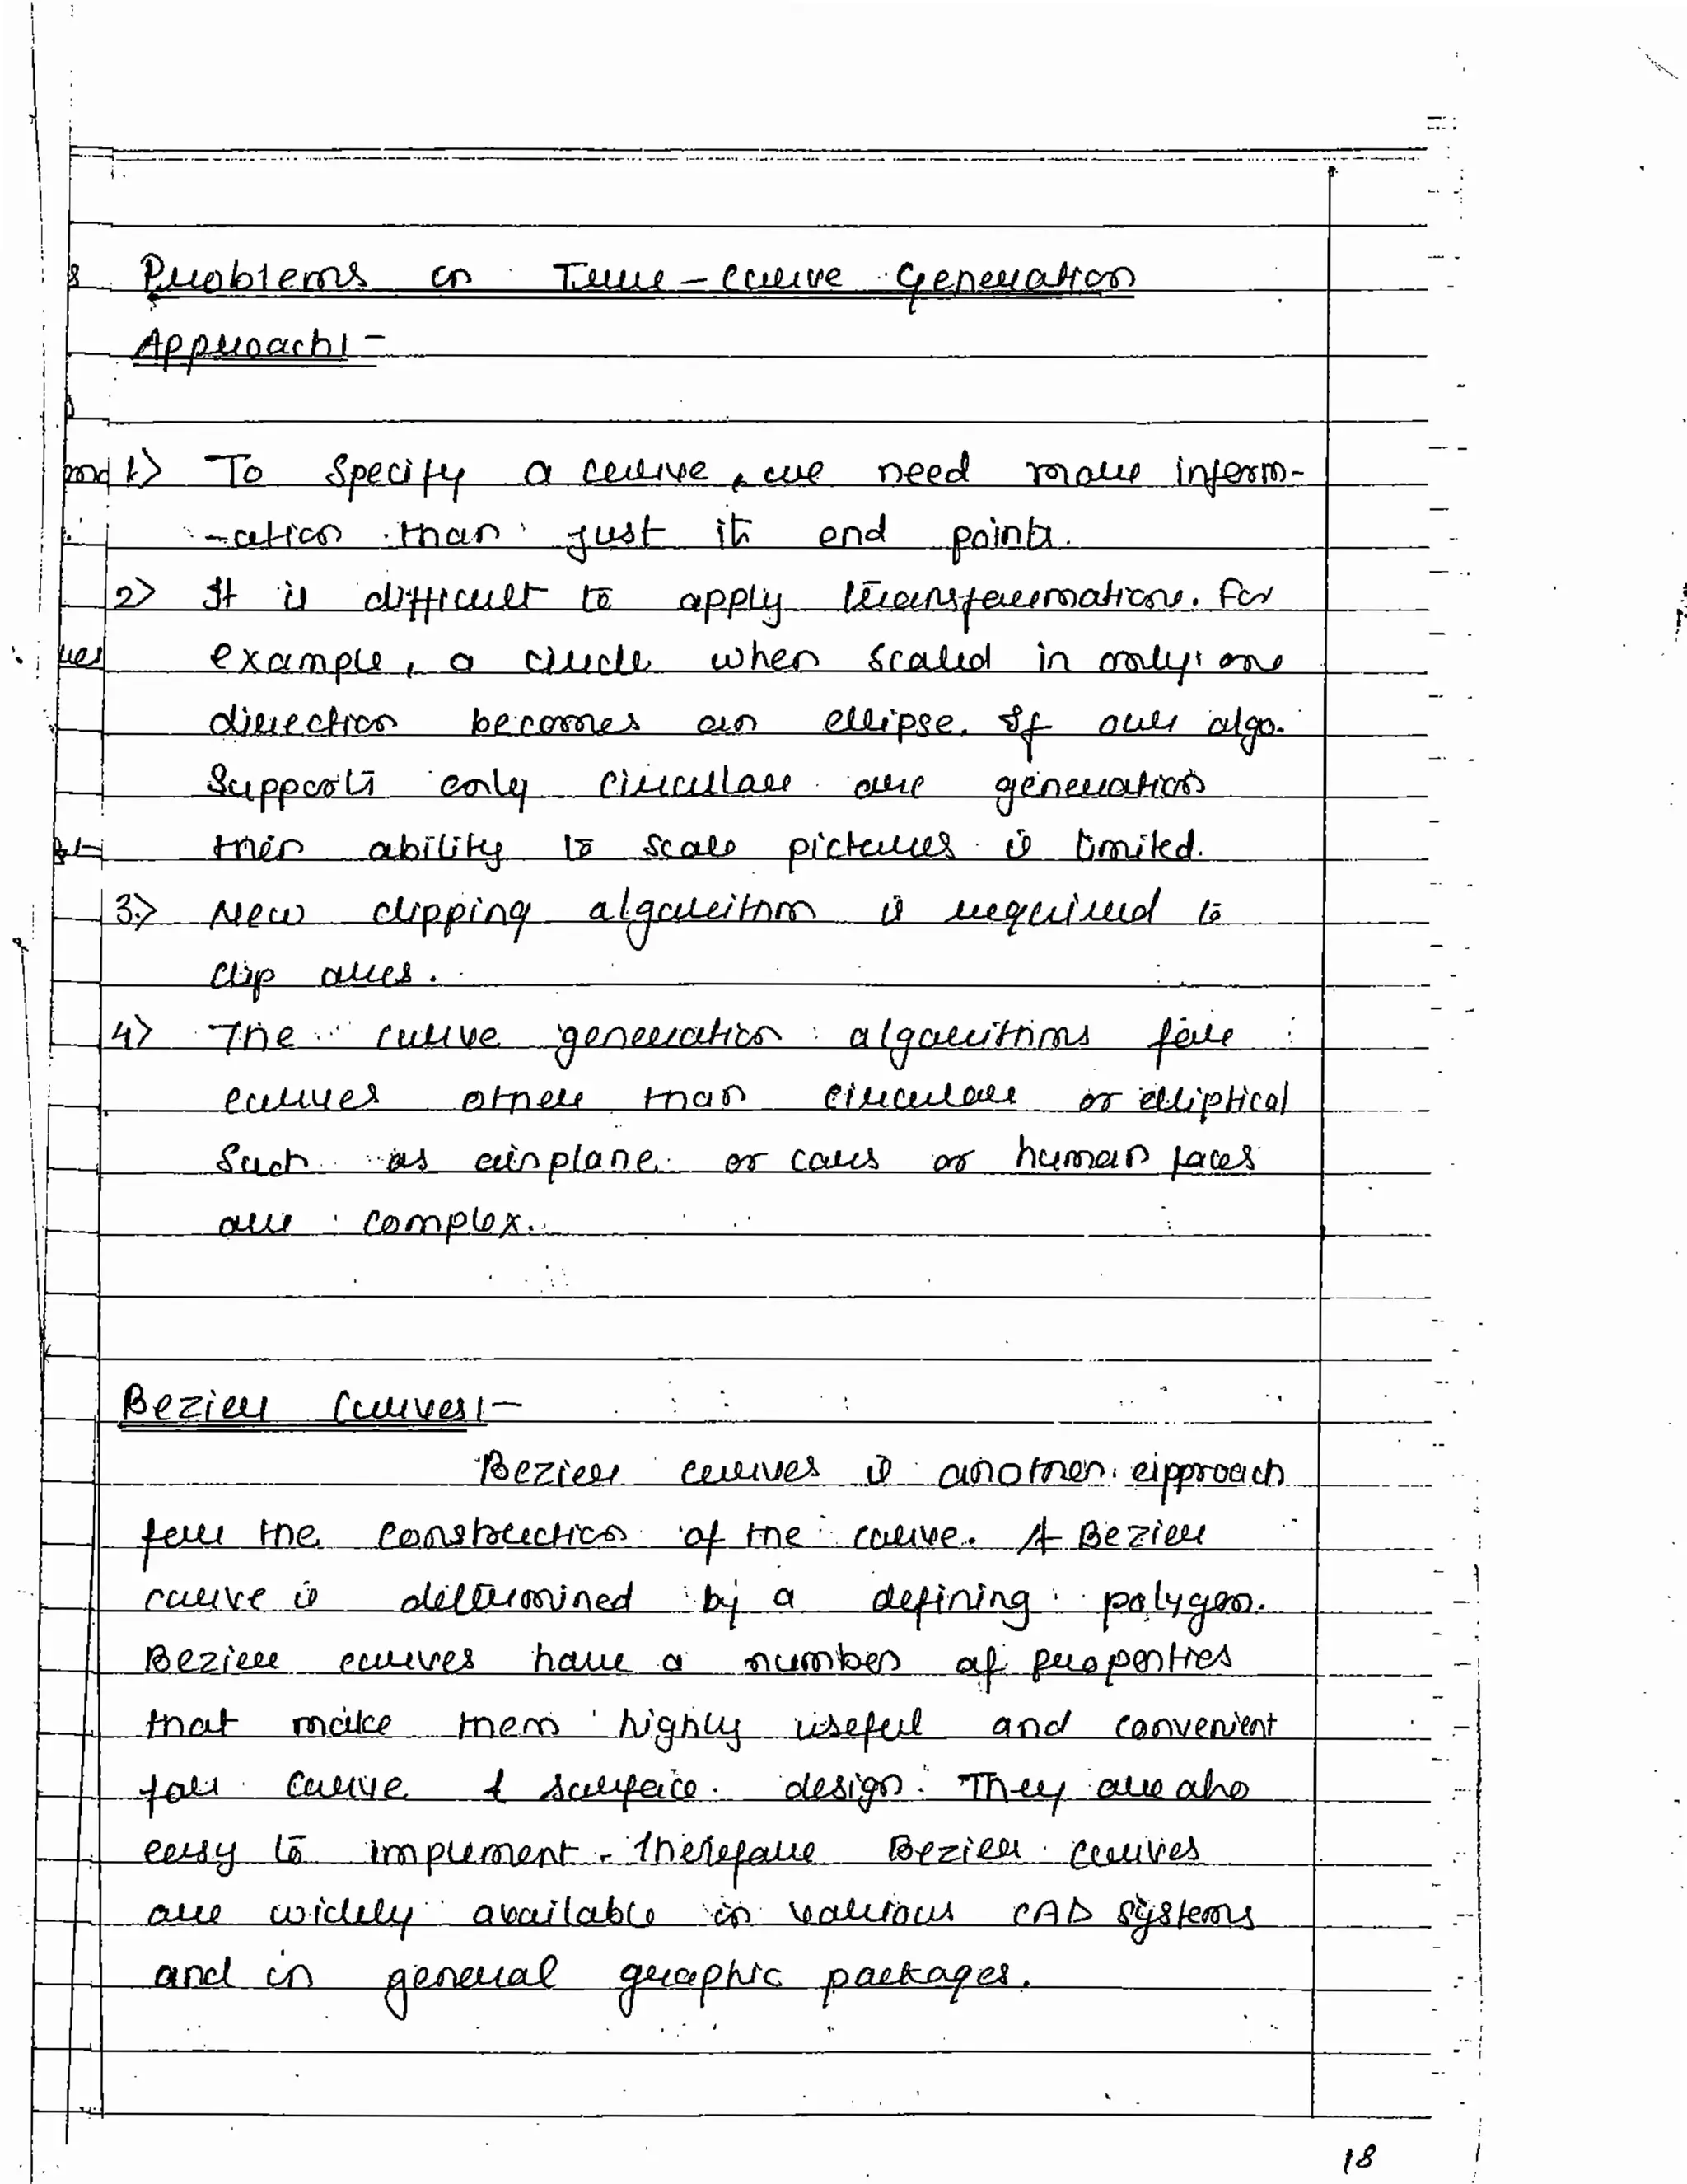 Problems in True-Curve Generation
Approach:-
1) To specify a curve, we need more inform-
-ation than just its end points.
2) It is difficult to apply transformations. For
example, a circle when scaled in only one
direction becomes an ellipse. If our algo.
supports only circular arc generation
then ability to scale pictures is limited.
3) New clipping algorithm is required to
clip arcs.
4) The curve generation algorithms for
curves other than circular or elliptical
such as airplane or cars or human faces
are complex.
Bezier Curves:-
Bezier curves is another approach
for the construction of the curve. A Bezier
curve is determined by a defining polygon.
Bezier curves have a number of properties
that make them highly useful and convenient
for curve & surface design. They are also
easy to implement. Therefore Bezier curves
are widely available in various CAD systems
and in general graphic packages.
18